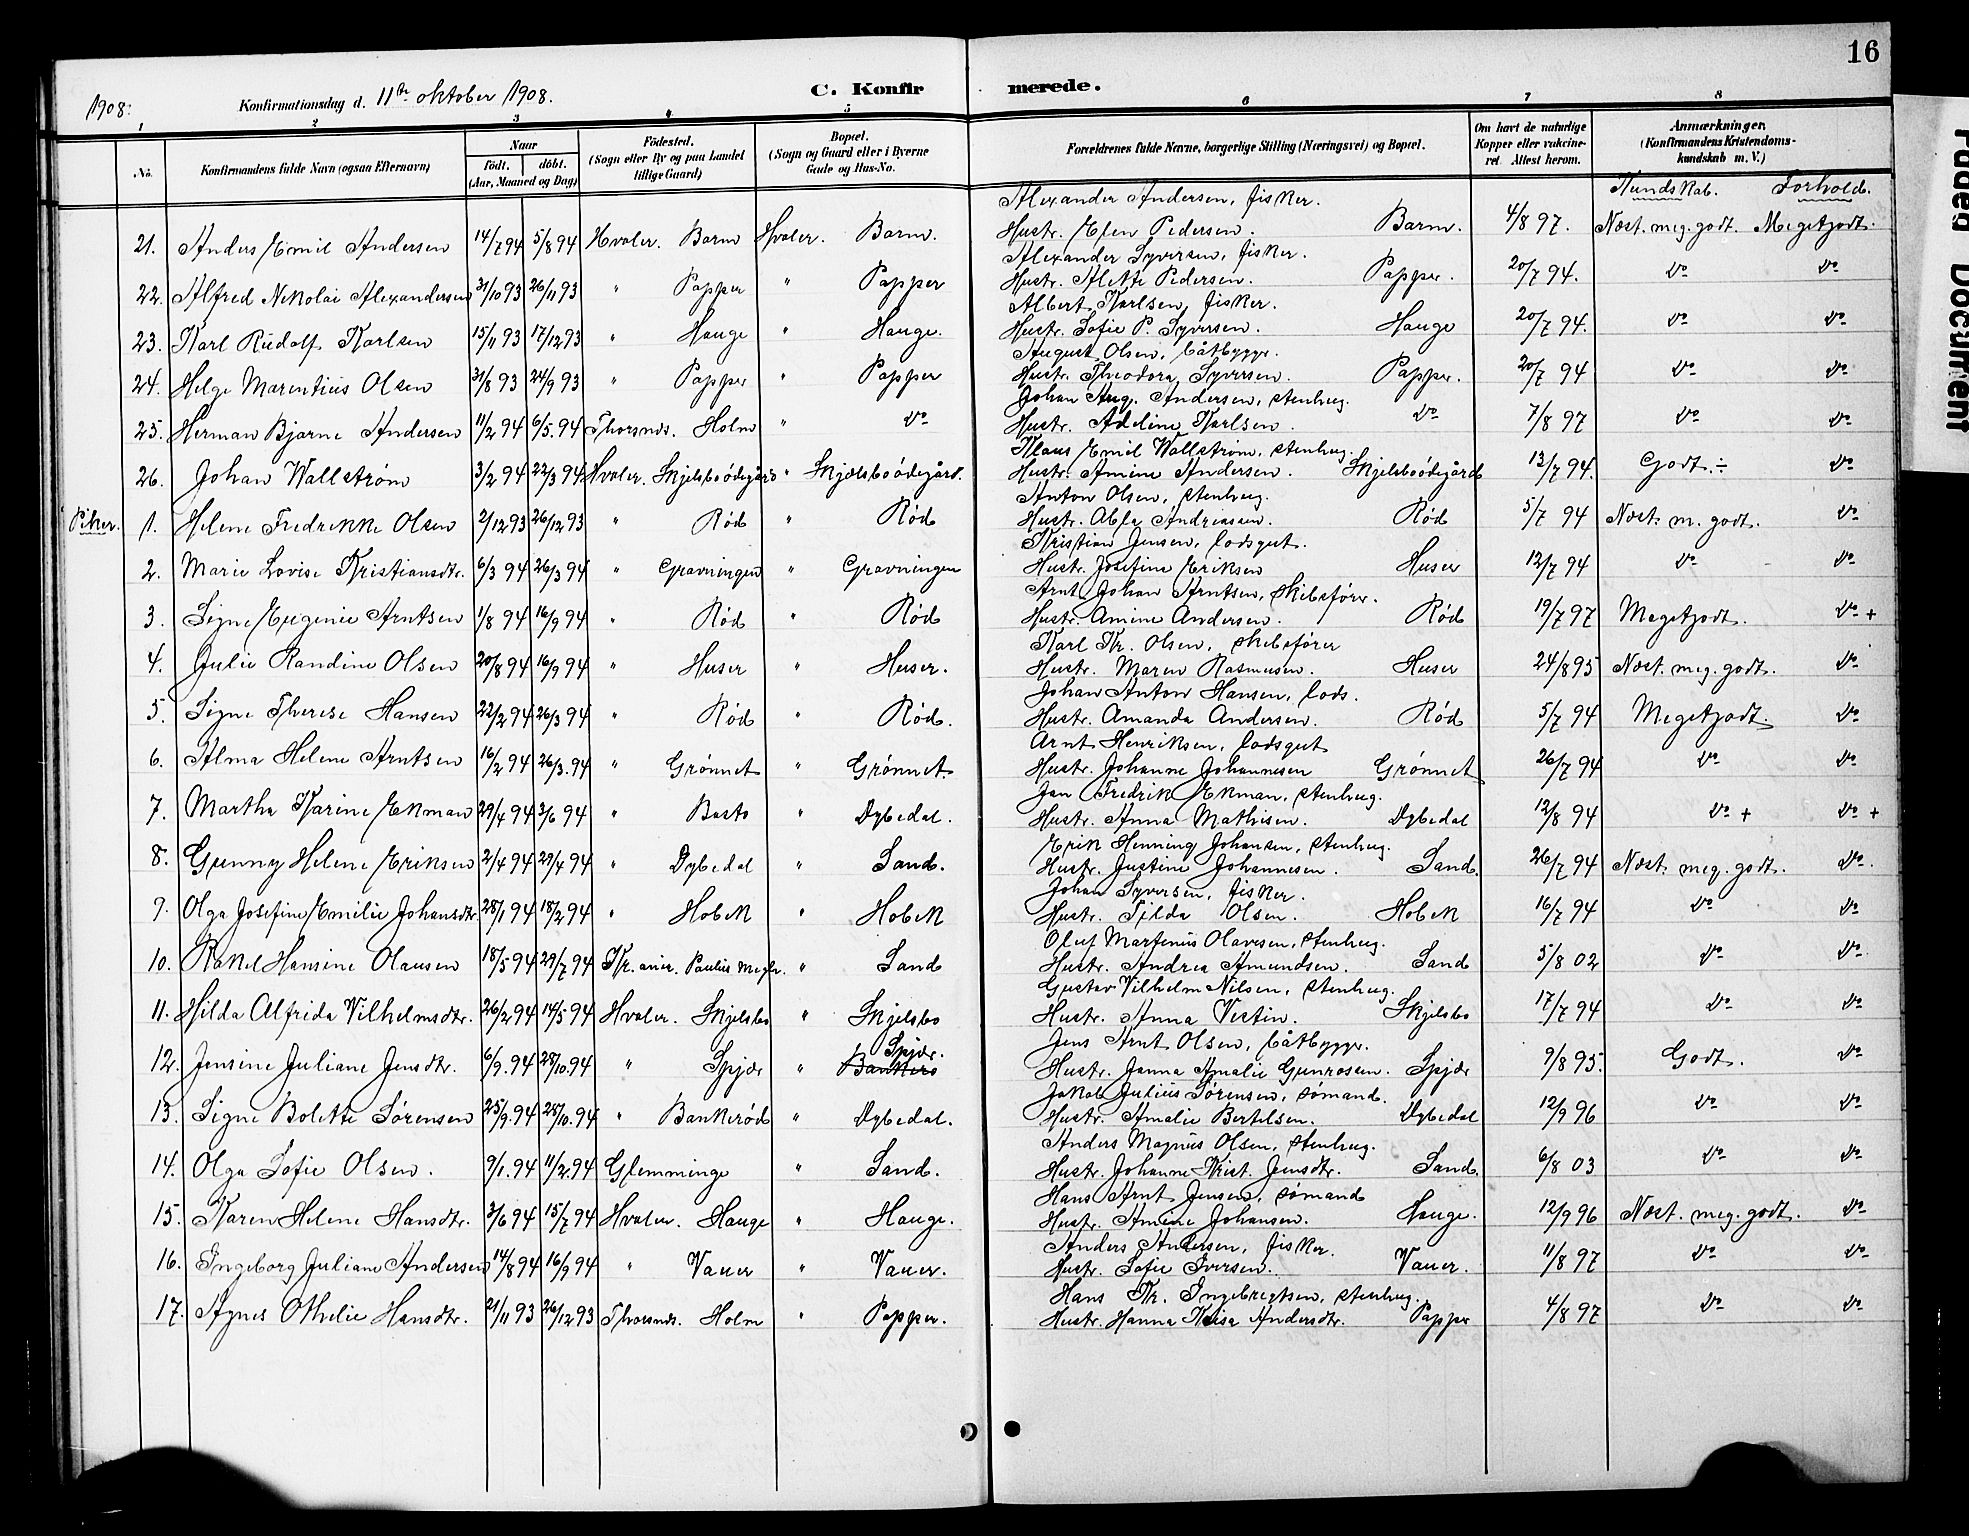 16
1908: Konfirmationsdag d. 11te oktober 1908. C. Konfir merede.
1 2 3 4 5 6 7 8
No. Konfirmandens fulde Navn (ogsaa Efternavn) Naar født. døbt. (Aar, Maaned og Dag) Fødested. (Sogn eller By og paa Landet tillige Gaard) Bopæl. (Sogn og Gaard eller i Byerne Gade og Hus-No. Forældrenes fulde Navne, borgerlige Stilling (Næringsvei) og Bopæl. Om havt de naturlige Kopper eller vaccineret. Attest herom. Anmærkninger. (Konfirmandens Kristendomskundskab m. V.)
Kundskab. Forhold.
Alexander Andersen, fisker.
21. Anders Emil Andersen 14/7 94 5/8 94 Hvaler. Barm Hvaler. Barm. Hustr. Elen Pedersen. Barm. 4/8 97. Næst. meg. godt. Megetgodt.
Alexander Syversen, fisker.
22. Alfred Nikolai Alexandersen 31/10 93 26/11 93 " Papper " Papper Hustr. Alette Pedersen. Papper. 20/7 94. do do
Albert Karlsen, fisker.
23. Karl Rudolf Karlsen 15/11 93 17/12 93 " Hauge " Hauge. Hustr. Sofie P. Syversen. Hauge 20/7 94. do do
August Olsen, båtbygger.
24. Helge Marentius Olsen 31/8 93 24/9 93 " Papper " Papper Hustr. Theodora Syversen. Papper. 20/7 94 do do
Johan Aug. Andersen, stenhug.
25. Herman Bjarne Andersen 11/2 94 6/5. 94 Thorsnds. Holm " do Hustr. Adeline Karlsen. do 7/8 97 do do
Klaus Emil Wallstrøm, stenhug.
26. Johan Wallstrøm 3/2 94 22/3 94 Hvaler. Skjelsboødegård " Skjælsboødegård. Hustr. Amine Andersen. Skjelsboødegård 13/7 94. Godt ÷ do
Anton Olsen, stenhug.
Piker. 1. Helene Fredrikke Olsen 2/12 93 26/12 93 " Rød " Rød Hustr. Abla Andreassen. Rød 5/7 94 Næst. m. godt. do
Kristian Jensen, lodsgut.
2. Marie Lovise Kristiansdtr. 6/3 94 26/3 94 " Gravningen " Gravningen Hustr. Josefine Eriksen Huser 12/7 94 do do
Arnt Johan Arntsen, skibsfører.
3. Signe Eugenie Arntsen 1/8 94 16/9 94 " Rød " Rød Hustr. Amine Andersen. Rød 19/7 97 Megetgodt. do +
Karl Kr. Olsen, skibsfører
4. Julie Randine Olsen 20/8 94 16/9 94 " Huser " Huser. Hustr. Maren Rasmusen. Huser 24/8 95 Næst. meg. godt. do
Johan Anton Hansen, lods.
5. Signe Therese Hansen 22/2 94 26/3 94 " Rød " Rød. Hustr. Amanda Andersen. Rød 5/7 94 Megetgodt. do
Arnt Henriksen, lodsgut
6. Alma Helene Arntsen 16/2 94 26/3. 94 " Grønnet " Grønnet Hustr. Johanne Johannesen Grønnet 26/7 94 do do
Jan Fredrik Ekman, stenhug.
7. Martha Karine Ekman 29/4 94 3/6 94 " Basto " Dybedal. Hustr. Anna Mathisen. Dybedal 12/8 94 do + do +
Erik Henning Johansen, stenhug.
8. Gunny Helene Eriksen 2/4 94 29/4 94 " Dybedal " Sand. Hustr. Justine Johannesen. Sand. 26/7 94 Næst. meg. godt. do
Johan Syversen, fisker.
9. Olga Josefine Emilie Johansdtr. 28/1 94 18/2 94 " Holæk " Holæk Hustr. Silda Olsen. Holæk 16/7 94 do do
Oluf Martenius Olavesen, stenhug.
10. Rakel Hansine Olausen 18/5 94 29/7 94 Kr.ania. Paulus Megh. " Sand Hustr. Andrea Amundsen. Sand 5/8 02 do do
Gustav Vilhelm Nilsen, stenhug.
11. Hilda Alfrida Vilhelmsdtr. 26/2 94 14/5 94 Hvaler. Skjelsbo " Skjelsbo Hustr. Anna Vestin. Skjelsbo 17/7 94 do do
Jens Arnt Olsen, båtbygger. Spjær.
12. Jensine Juliane Jensdtr. 6/9. 94 28/10. 94 " Spjær " Bankerø Hustr. Janna Amalie Gunrosen. Spjær 9/8 95. Godt. do
Jakob Julius Sørensen, sømand.
13. Signe Bolette Sørensen 25/9. 94 28/10. 94 " Bankerød " Dybedal. Hustr. Amalie Bertelsen. Dybedal 12/9 96 do do
Anders Magnus Olsen, stenhug.
14. Olga Sofie Olsen. 9/1. 94 11/2. 94 Glemminge " Sand. Hustr. Johanne Krist. Jensdtr. Sand. 6/8 03 do do
Hans Arnt Jensen, sømand
15. Karen Helene Hansdtr. 3/6 94 15/7 94 Hvaler. Hauge " Hauge. Hustr. Amine Johansen. Hauge. 12/9 96 Næst. meg. godt. do
Anders Andersen, fisker.
16. Ingeborg Juliane Andersen 14/8 94 16/9 94 " Vauer " Vauer. Hustr. Sofie Iversen. Vauer. 11/8 97 do do
Hans Kr. Ingebregtsen, stenhug.
17. Agnes Othelie Hansdtr. 21/11 93 26/12 93 Thorsnds. Holm " Papper. Hustr. Hanna Andersdtr. Papper 4/8 97 do do
Faded Document